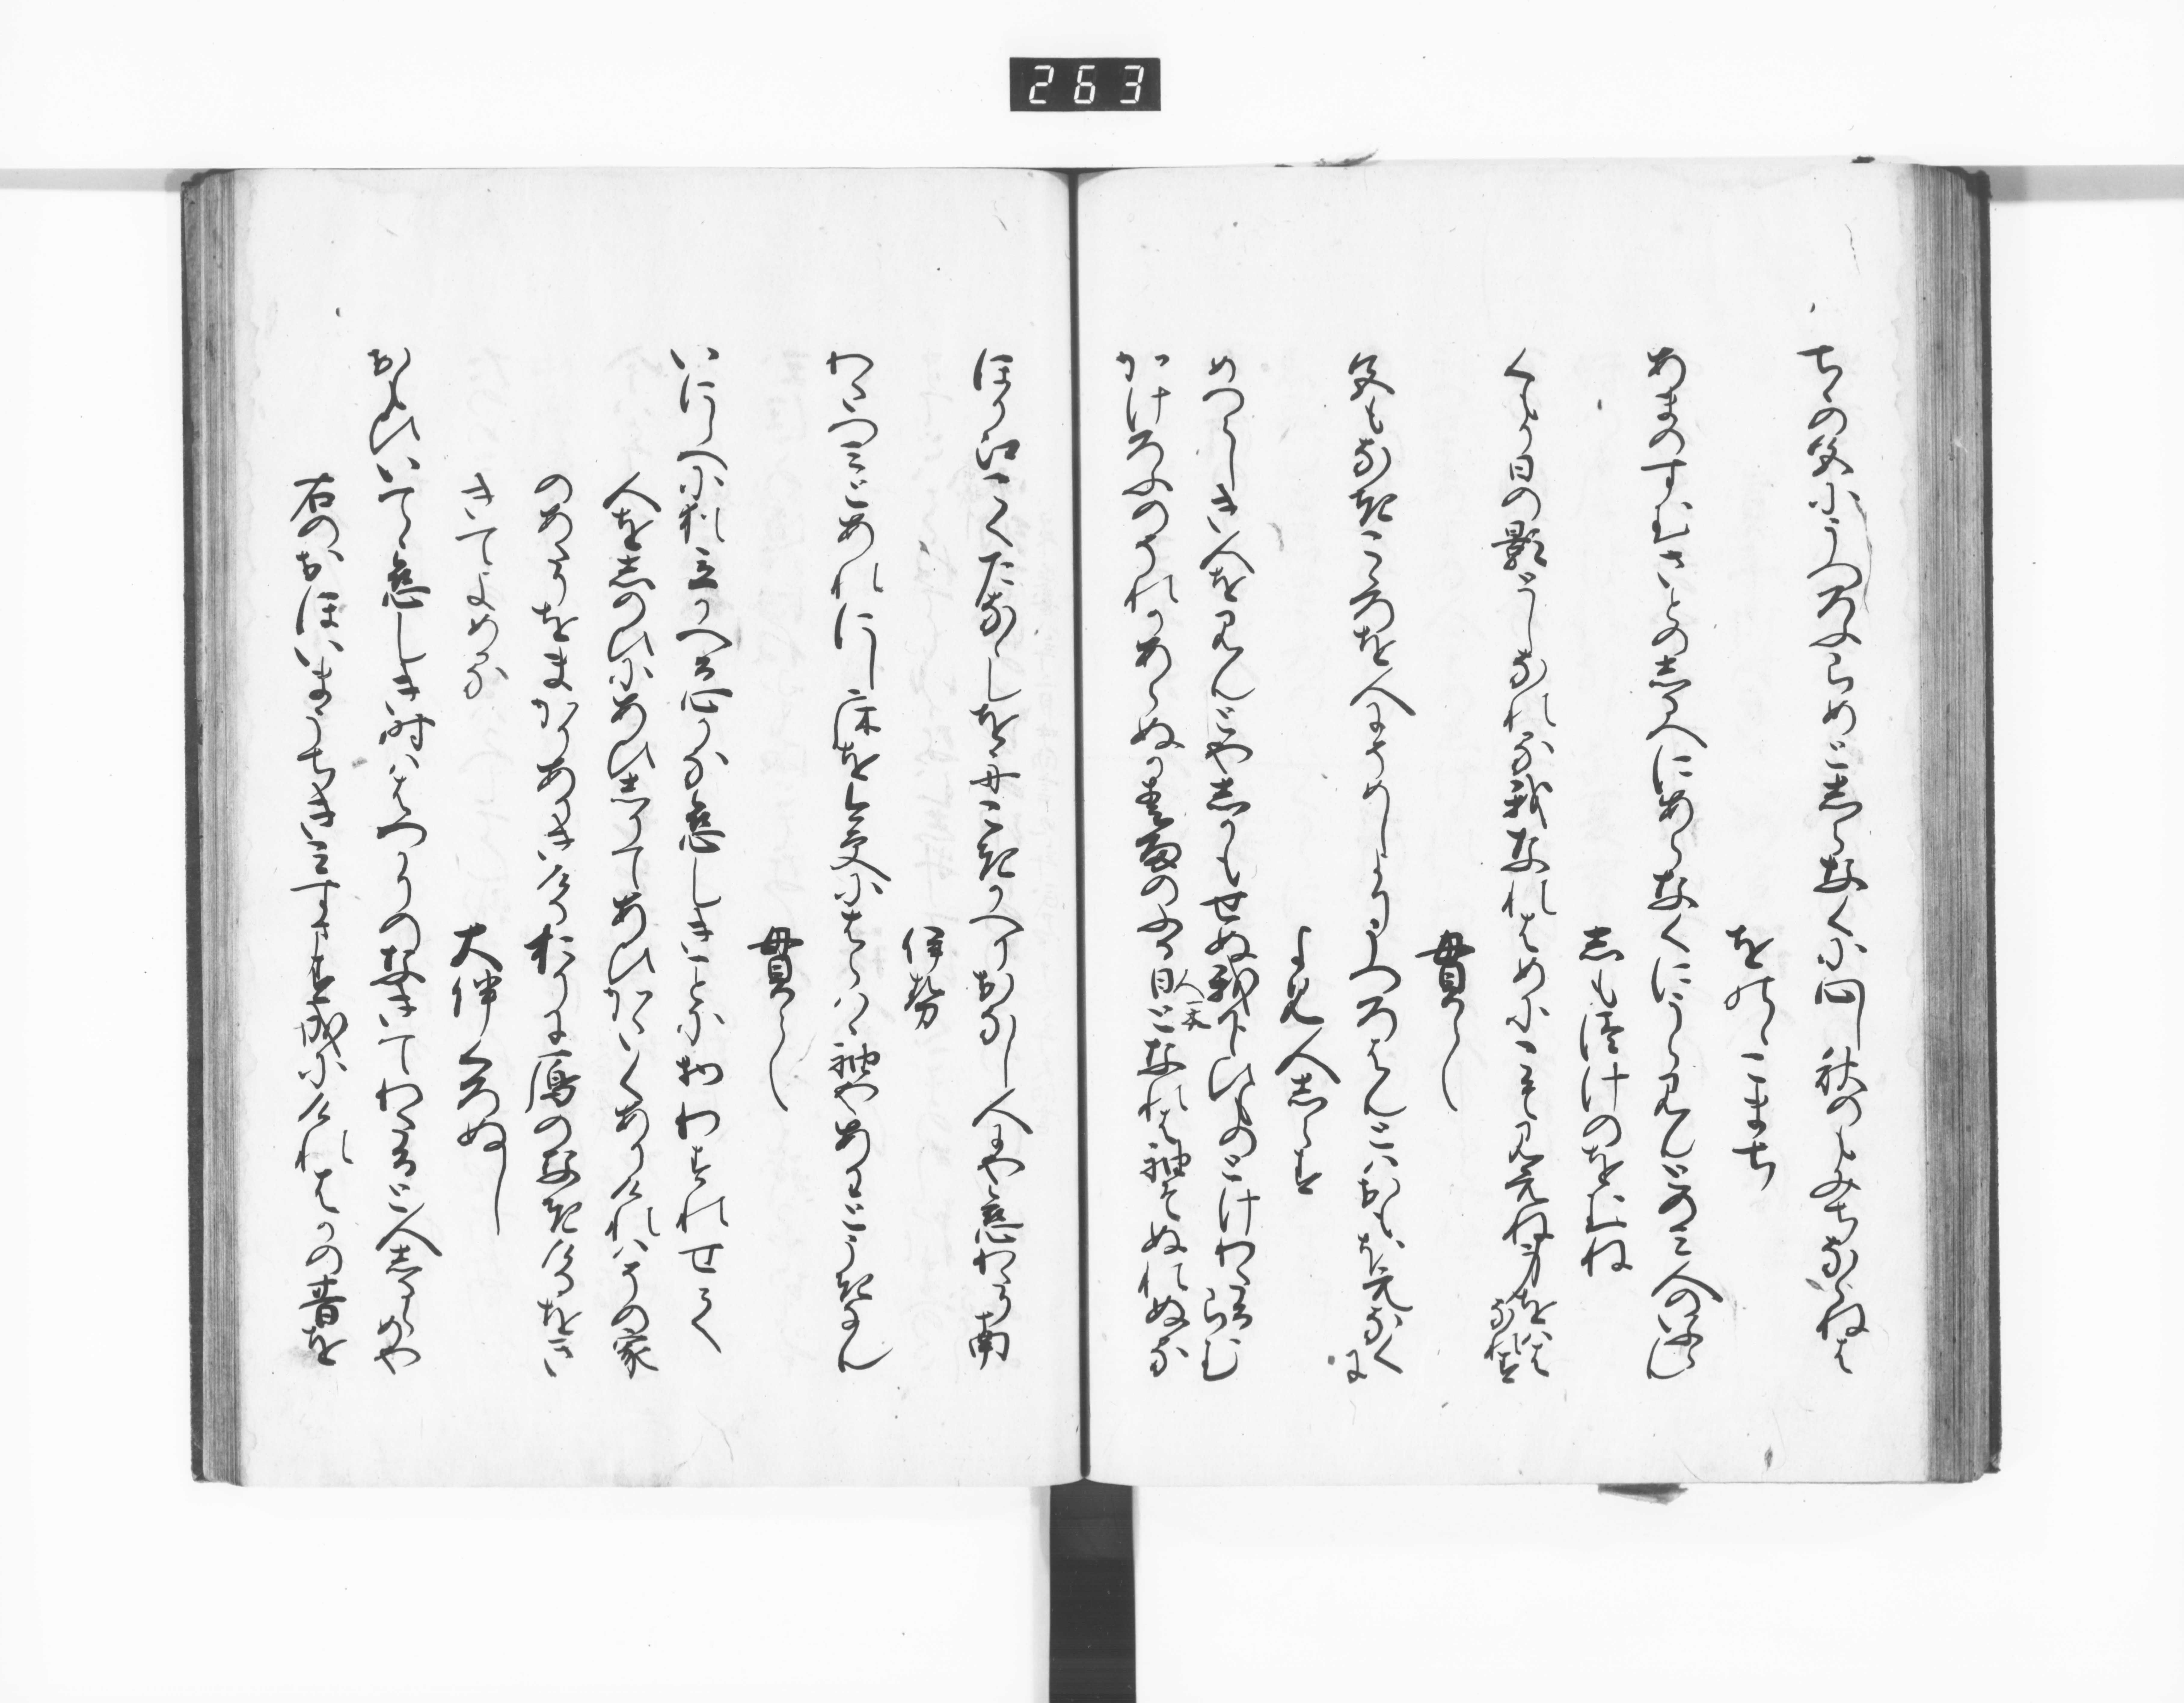 263
ちゝの色にうつろふらめとしらなくに心し秋のもみちならねは
をのゝこまち
あまのすむさとのしるへにあらなくにうらみんとのみ人のいふらん
しもつけのをむね
くもり日の影としなれる我なれはめにこそ見えね身をははなれす
貫之
色もなきこゝろを人にそめしよりうつろはんとはおもほえなくに
よみ人しらす
めつらしき人を見んとやしかもせぬ我下ひものとけわたるらむ
かけろふのそれかあらぬか春雨のふる日となれは袖そぬれぬる
ふる人天
ほり江こくたなゝしを舟こきかへりおなし人にや恋わたり南
伊勢
わたつみとあれにし床を今更にはらはゝ袖やあわとうきなん
貫之
いにしへに猶立かへる心かな恋しきことに物わすれせて
人をしのひにあひしりてあひかたくありけれはその家
のあたりをまかりありきけるおりに雁のなきけるをき
きてよめる
大伴くろぬし
おもひいてゝ恋しき時ははつかりのなきてわたると人しるらめや
右のおほいまうちきみすますなりにけれはかの昔を